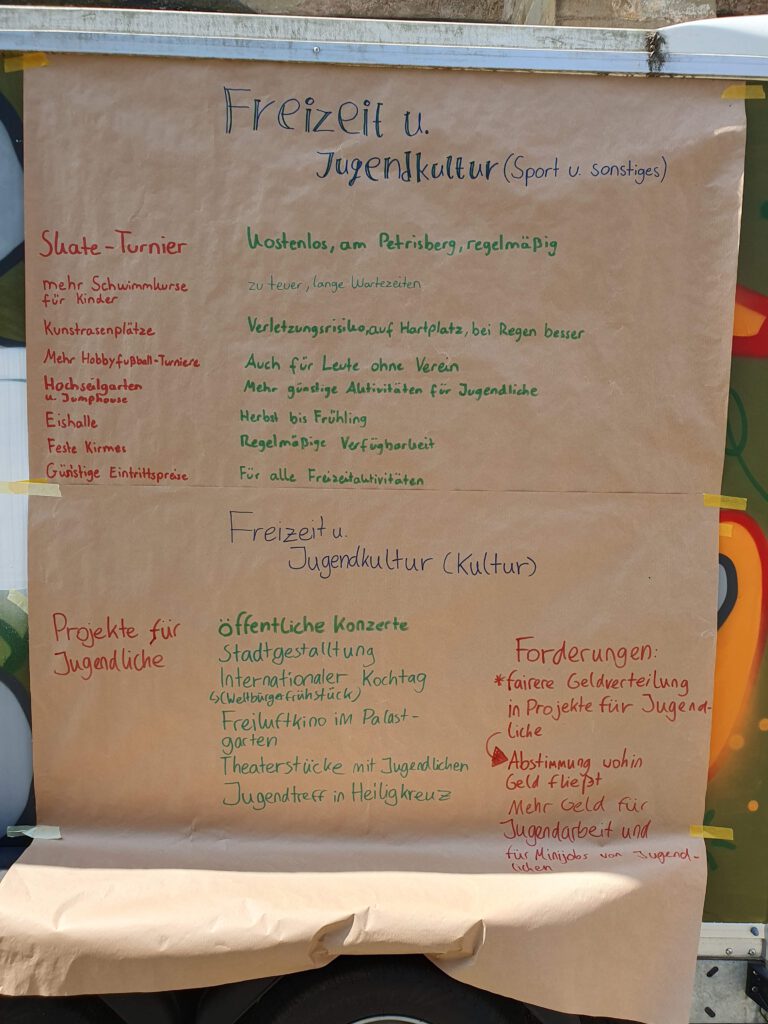 Freizeit u.
Jugendkultur (Sport u. sonstiges)
Skate-Turnier
kostenlos, am Petrisberg, regelmäßig
mehr Schwimmkurse
für Kinder
zu teuer, lange Wartezeiten
Kunstrasenplätze
Verletzungsrisiko, auf Hartplatz, bei Regen besser
Mehr Hobbyfußball-Turniere
Auch für Leute ohne Verein
Hochseilgarten
u. Jumphouse
Mehr günstige Aktivitäten für Jugendliche
Eishalle
Herbst bis Frühling
Feste Kirmes
Regelmäßige Verfügbarkeit
Günstige Eintrittspreise
Für alle Freizeitaktivitäten
Freizeit u.
Jugendkultur (Kultur)
Projekte für
Jugendliche
öffentliche Konzerte
Stadtgestalltung
Internationaler Kochtag
↳(Weltbürgerfrühstück)
Freiluftkino im Palast-
garten
Theaterstücke mit Jugendlichen
Jugendtreff in Heiligkreuz
Forderungen:
*fairere Geldverteilung
in Projekte für Jugend-
liche
Abstimmung wohin
Geld fließt
Mehr Geld für
Jugendarbeit und
für Minijobs von Jugend-
lichen